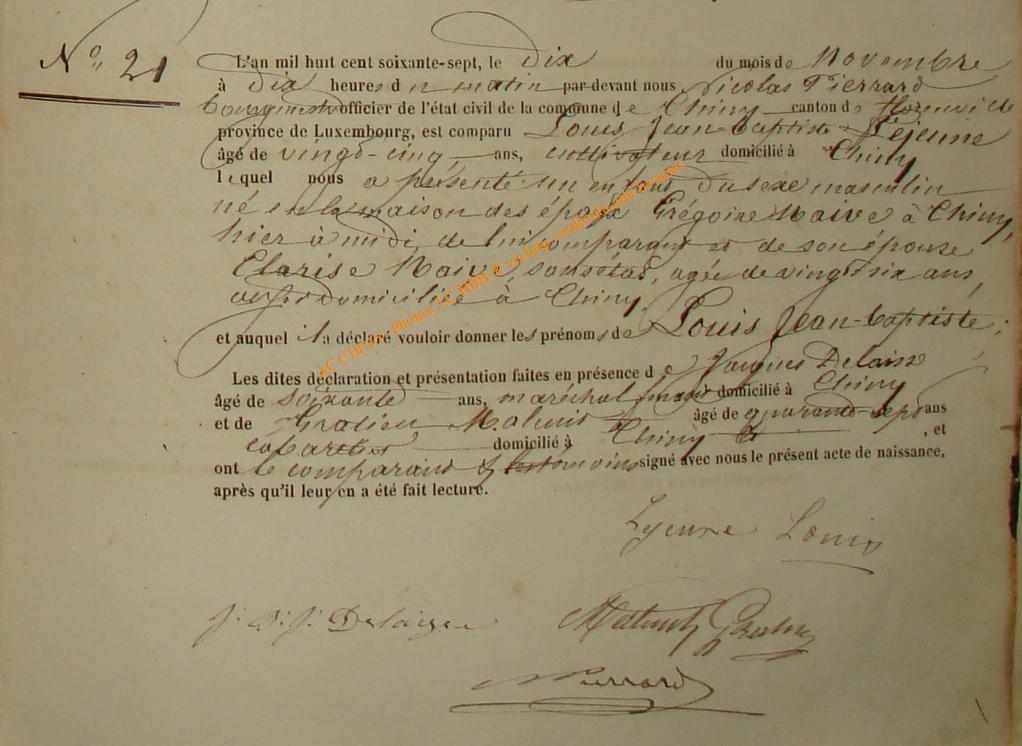 N° 21
L'an mil huit cent soixante-sept, le dix du mois de Novembre
à dix heures du matin par-devant nous Nicolas Pierrard
bourgmestre officier de l'état civil de la commune de Chiny canton de Florenville
province de Luxembourg, est comparu Louis Jean-Baptiste Lejeune
âgé de vingt-cinq ans, cultivateur domicilié à Chiny
lequel nous a présenté un enfant du sexe masculin
né en la maison des époux Grégoire Naive à Chiny,
hier à midi, de lui comparant et de son épouse
Clarise Naive, sans état, agée de vingt six ans,
aussi domicilié à Chiny,
et auquel il a déclaré vouloir donner les prénoms de Louis Jean-Baptiste;
Les dites déclaration et présentation faites en présence de Jacques Delaisse
âgé de soixante ans, maréchal ferrant domicilié à Chiny
et de Gratien Mahuit âgé de quarante-sept ans
cabaretier domicilié à Chiny , et
ont le comparant & les témoins signé avec nous le présent acte de naissance,
après qu'il leur en a été fait lecture.
Lejeune Louis
J. J. Delaisse
Pierrard
AC CHINY Photos